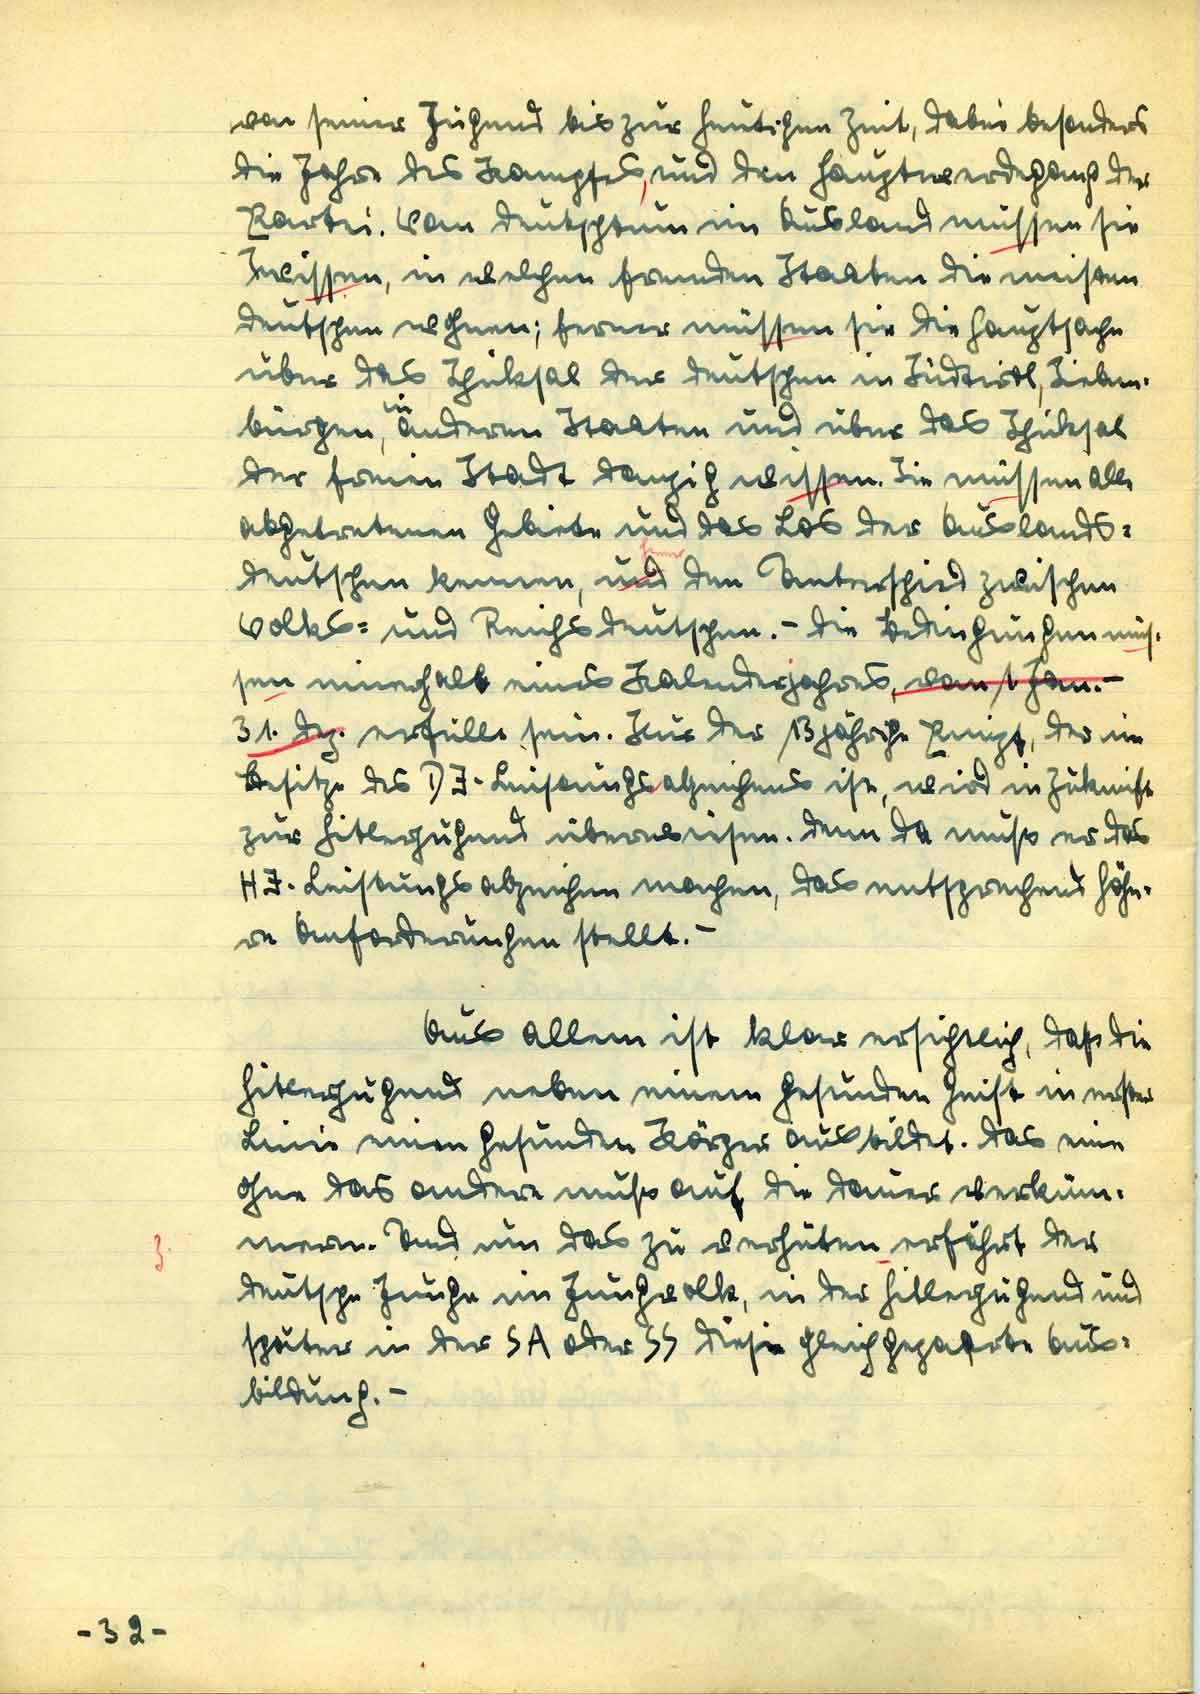 von seiner Jugend bis zur heutigen Zeit, dabei besonders
die Jahre des Kampfes, und den Hauptwerdegang der
Partei. Vom Deutschtum im Ausland müssen sie
wissen, in welchen fremden Staaten die meisten
Deutschen wohnen; ferner müssen sie die Hauptsache
über das Schicksal der Deutschen in Südtirol, Sieben-
bürgen, in anderen Staaten und über das Schicksal
der freien Stadt Danzig wissen. Sie müssen alle
abgetretenen Gebiete und das Los der Auslands=
deutschen kennen, und ferner den Unterschied zwischen
Volks= und Reichsdeutschen. - Die Bedingungen müs-
sen innerhalb eines Kalenderjahres, vom 1. Jan. -
31. Dez. erfüllt sein. Nur der 13jährige Pimpf, der im
Besitze des DJ-Leistungsabzeichens ist, wird in Zukunft
zur Hitlerjugend überwiesen. Denn da muß er das
HJ-Leistungsabzeichen machen, das entsprechend höhe-
re Anforderungen stellt. -
Aus allem ist klar ersichtlich, daß die
Hitlerjugend neben einem gesunden Geist in erster
Linie einen gesunden Körper ausbildet. Das eine
ohne das andere muß auf die Dauer verküm-
mern. Und um das zu verhüten erfährt der
deutsche Junge im Jungvolk, in der Hitlerjugend und
später in der SA oder SS diese gleichgepaarte Aus=
bildung. -
- 32 -